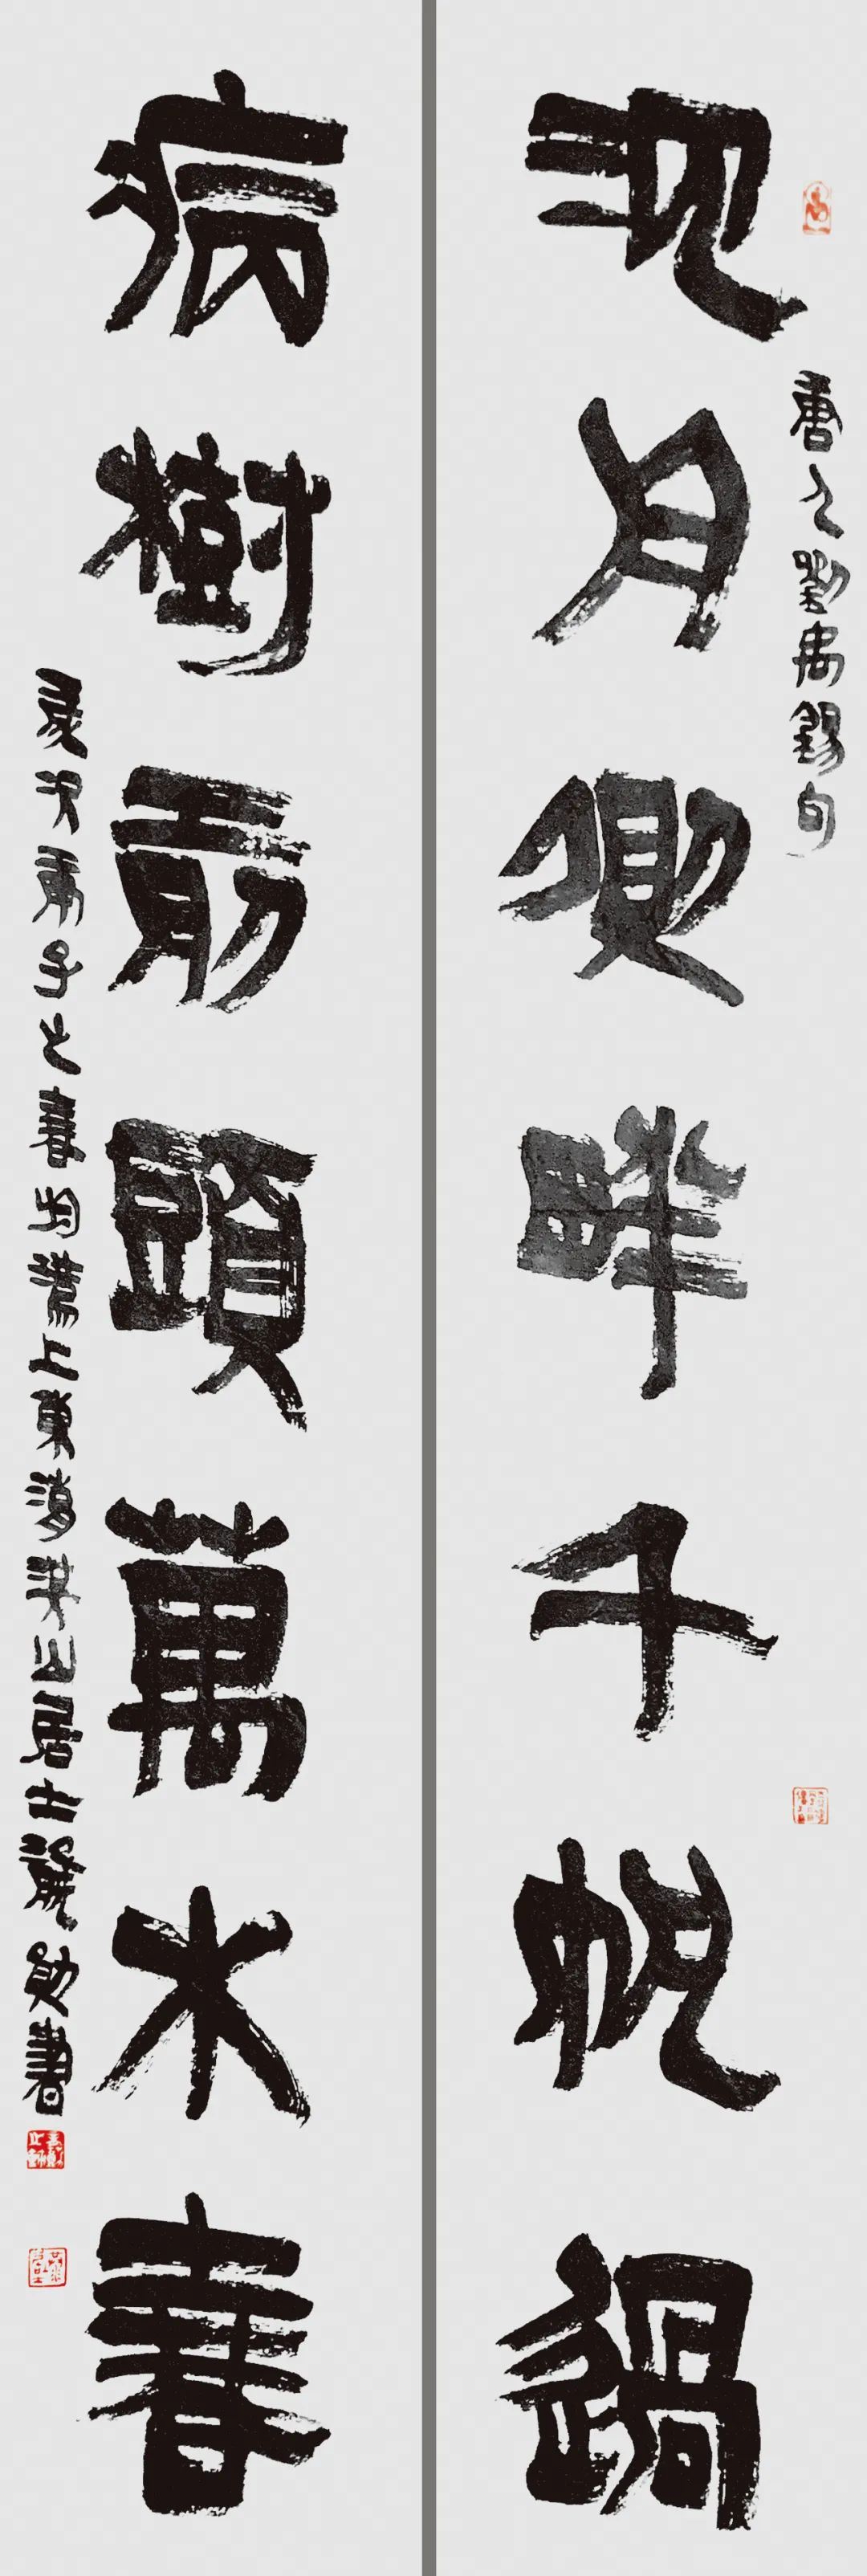 唐人劉禹錫句
沉舟側畔千帆過
病樹前頭萬木春
歲次庚子之春 上東海 山居士 書